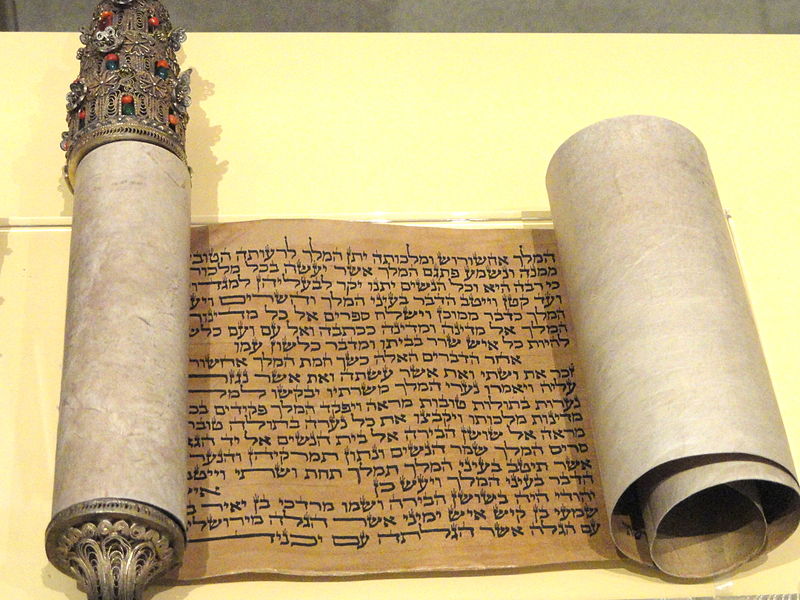 המלך אחשורוש ומלכותה יתן המלך לרעותה
ממנה ונשמע פתגם המלך אשר יעשה בכל
כי רבה היא וכל הנשים יתנו יקר לבעליהן
ועד קטן וייטב הדבר בעיני המלך והשרים
המלך כדבר ממוכן וישלח ספרים אל כל
המלך אל מדינה ומדינה ככתבה ואל עם ועם
להיות כל איש שרר בביתו ומדבר כלשון עמו
אחר הדברים האלה כשך חמת המלך
זכר את ושתי ואת אשר עשתה ואת אשר
עליה ויאמרו נערי המלך משרתיו יבקשו
נערות בתולות טובות מראה ויפקד המלך פקידים
מדינות מלכותו ויקבצו את כל נערה בתולה
מראה אל שושן הבירה אל בית הנשים אל יד
סריס המלך שמר הנשים ונתון תמרקיהן
אשר תיטב בעיני המלך תמלך תחת ושתי
הדבר בעיני המלך ויעש כן
יהודי היה בשושן הבירה ושמו מרדכי בן יאיר
שמעי בן קיש איש ימיני אשר הגלה
עם הגלה אשר הגלתה עם יכניה